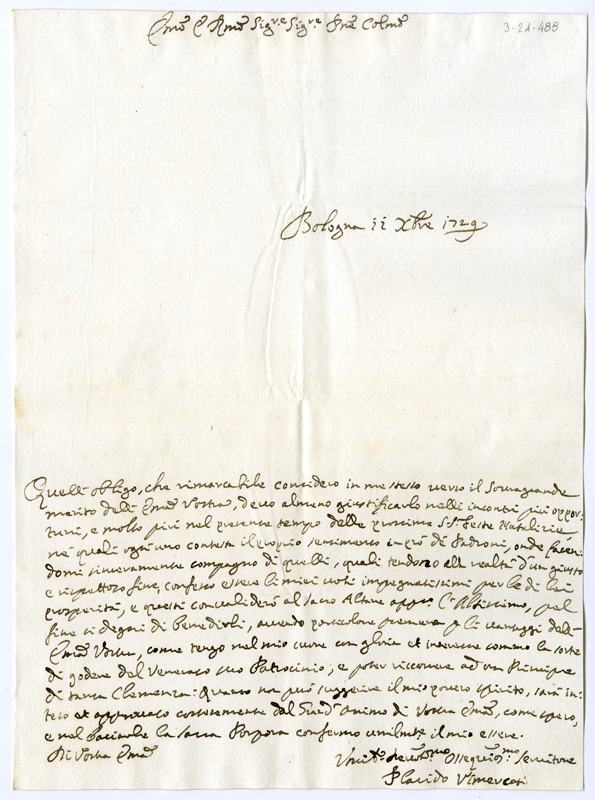 Emo e Rmo Sigre Sigre Pne Colmo
3-21-488
Bologna 11 Xbre 1729
Quell'obligo, che rimarcabile considero in me stesso verso il Sovragrande
merito dell'Emza Vostra, devo almeno giustificarlo nelli incontri più oppor-
tuni, e molto più nel presente tempo delle prossime SSe Feste Natalizie
ne' quali ogni uno contesta il proprio sentimento in prò di Padroni, onde facen-
domi sinceramente compagno di quelli, quali tendono alla realtà d'un giusto
e rispettoso fine, confesso essere li miei voti impegnatissimi per le di lei
prosperità, e questi convaliderò al sacro Altare appo l'Altissimo, pel
fine si degni di benedirli, avendo particolare premura p li vantaggi dell'
Emza Vostra, come tengo nel mio cuore con gloria et interesse sommo la sorte
di godere del Venerato suo Patrocinio, e poter ricorrere ad un Principe
di tanta Clemenza: Quanto non può suggerire il mio povero spirito, sarà in-
teso et approvato cortesemente dal Grand'Animo di Vostra Emza, come spero,
e nel baciarle la Sacra Porpora confermo umilmte il mio essere.
Di Vostra Emza
Umilo devotmo Ossequiosmo Servitore
Placido Vimercati